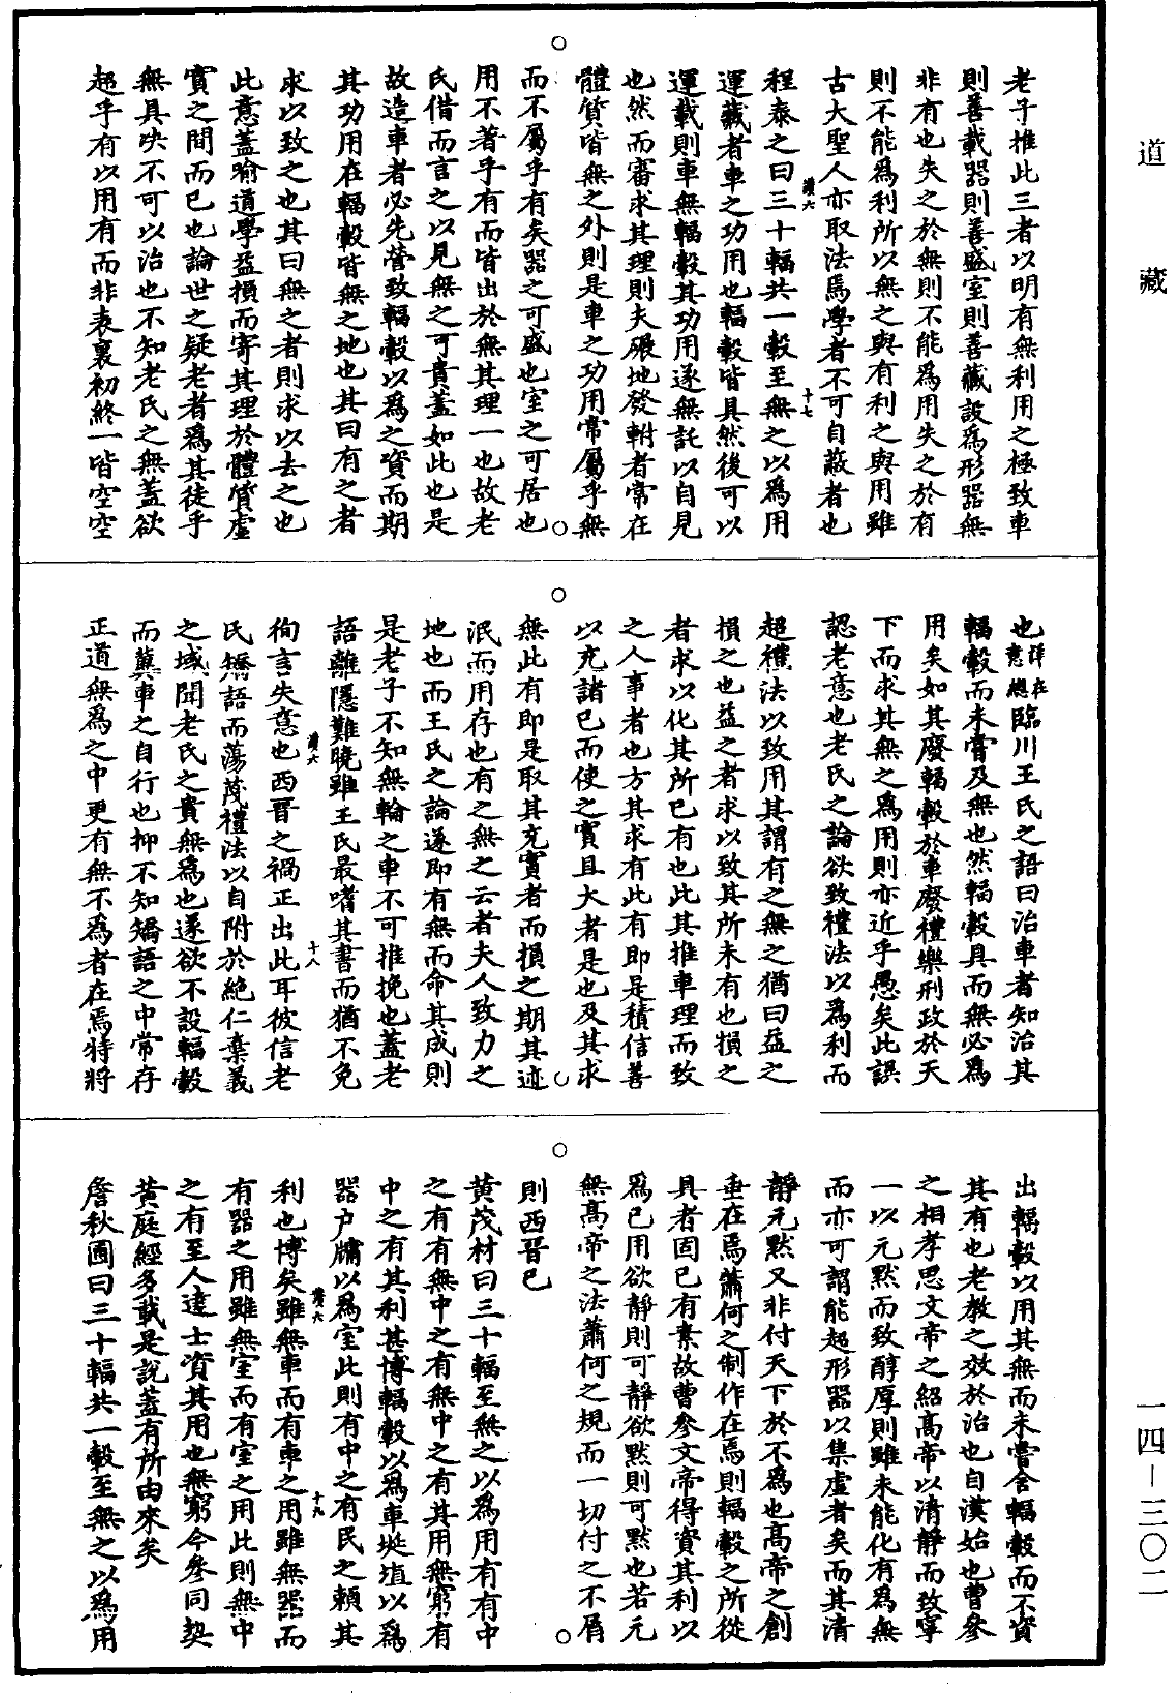 道藏
老子推此三者以明有無利用之極致車
則善載器則善盛室則善藏設爲形器無
非有也失之於無則不能爲用失之於有
則不能爲利所以無之與有利之與用雖
古大聖人亦取法焉學者不可自蔽者也
程泰之曰三十輻共一轂至無之以爲用
運藏者車之功用也輻轂皆具然後可以
運載則車無輻轂其功用遂無託以自見
也然而審求其理則夫碾地發軵者常在
體質皆無之外則是車之功用常屬乎無
而不屬乎有矣器之可盛也室之可居也
用不著乎有而皆出於無其理一也故老
氏借而言之以見無之可貴蓋如此也是
故造車者必先營致輻轂以爲之資而期
其功用在輻轂皆無之地也其曰有之者
求以致之也其曰無之者則求以去之也
此意蓋喻道學益損而寄其理於體質虛
實之間而已也論世之疑老者爲其徒乎
無具決不可以治也不知老氏之無蓋欲
超乎有以用有而非表裏初終一皆空空
也詳在意總臨川王氏之語曰治車者知治其
輻轂而未嘗及無也然輻轂具而無必爲
用矣如其廢輻轂於車廢禮樂刑政於天
下而求其無之爲用則亦近乎愚矣此誤
認老意也老氏之論欲致禮法以爲利而
超禮法以致用其謂有之無之猶曰益之
損之也益之者求以致其所未有也損之
者求以化其所已有也此其推車理而致
之人事者也方其求有此有即是積信善
以充諸已而使之實且大者是也及其求
無此有即是取其充實者而損之期其迹
泯而用存也有之無之云者夫人致力之
地也而王氏之論遂即有無而命其成則
是老子不知無輪之車不可推挽也蓋老
語離隱難曉雖王氏最嗜其書而猶不免
徇言失意也西晉之禍正出此耳彼信老
氏矯語而蕩蔑禮法以自附於絶仁棄義
之域聞老氏之貴無爲也遂欲不設輻轂
而冀車之自行也抑不知矯語之中常存
正道無爲之中更有無不爲者在焉特將
出輻轂以用其無而未嘗舍輻轂而不資
其有也老教之效於治也自漢始也曹參
之相孝思文帝之紹高帝以清靜而致寧
一以元默而致醇厚則雖未能化有爲無
而亦可謂能超形器以集虛者矣而其清
靜元默又非付天下於不爲也高帝之創
垂在焉蕭何之制作在焉則輻轂之所從
具者固已有素故曹參文帝得資其利以
爲已用欲靜則可靜欲默則可默也若元
無高帝之法蕭何之規而一切付之不屑
則西晉已
黃茂材曰三十輻至無之以爲用有有中
之有有無中之有無中之有其用無窮有
中之有其利甚博輻轂以爲車埏埴以爲
器户牖以爲室此則有中之有民之賴其
利也博矣雖無車而有車之用雖無器而
有器之用雖無室而有室之用此則無中
之有至人達士資其用也無窮今參同契
黃庭經多載是說蓋有所由來矣
詹秋圃曰三十輻共一轂至無之以爲用
讚六
十七
讚六
十八
讚六
十九
一四－三〇二